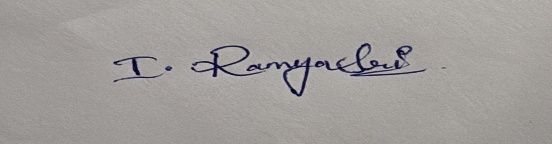 I. Ramyasri